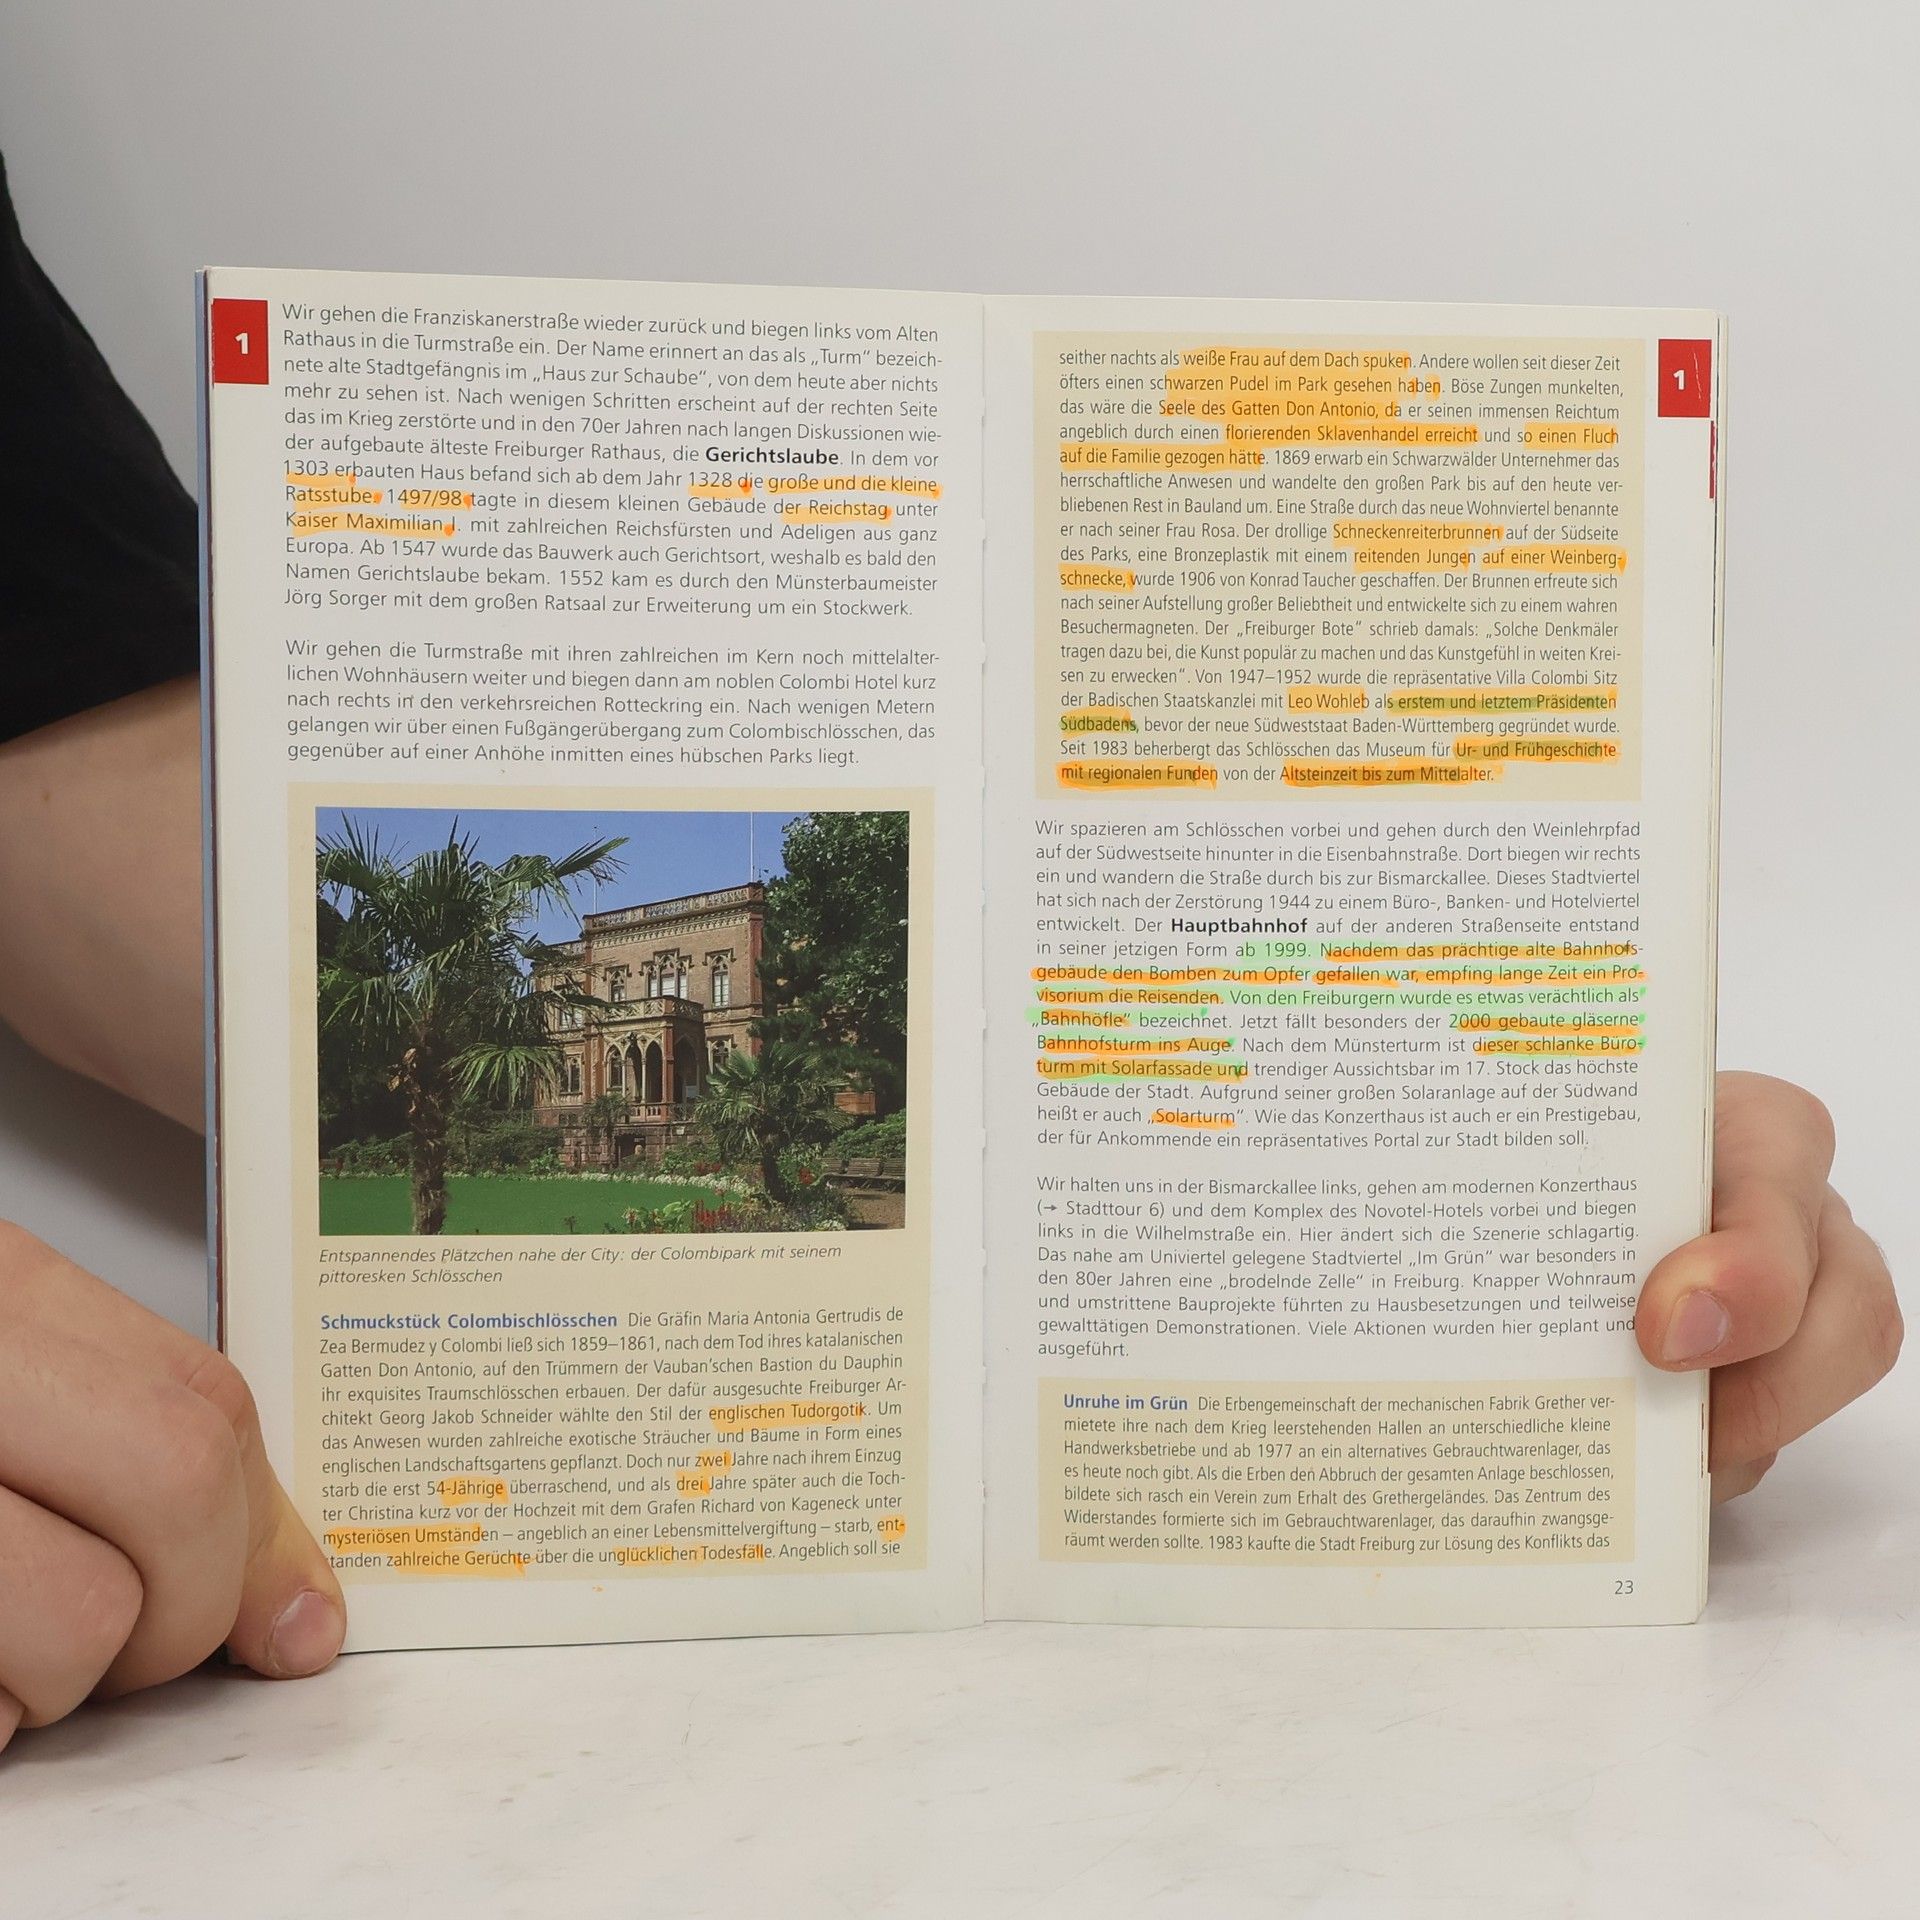 1
Wir gehen die Franziskanerstraße wieder zurück und biegen links vom Alten
Rathaus in die Turmstraße ein. Der Name erinnert an das als „Turm“ bezeich-
nete alte Stadtgefängnis im „Haus zur Schaube“, von dem heute aber nichts
mehr zu sehen ist. Nach wenigen Schritten erscheint auf der rechten Seite
das im Krieg zerstörte und in den 70er Jahren nach langen Diskussionen wie-
der aufgebaute älteste Freiburger Rathaus, die Gerichtslaube. In dem vor
1303 erbauten Haus befand sich ab dem Jahr 1328 die große und die kleine
Ratsstube. 1497/98 tagte in diesem kleinen Gebäude der Reichstag unter
Kaiser Maximilian I. mit zahlreichen Reichsfürsten und Adeligen aus ganz
Europa. Ab 1547 wurde das Bauwerk auch Gerichtsort, weshalb es bald den
Namen Gerichtslaube bekam. 1552 kam es durch den Münsterbaumeister
Jörg Sorger mit dem großen Ratsaal zur Erweiterung um ein Stockwerk.
Wir gehen die Turmstraße mit ihren zahlreichen im Kern noch mittelalter-
lichen Wohnhäusern weiter und biegen dann am noblen Colombi Hotel kurz
nach rechts in den verkehrsreichen Rotteckring ein. Nach wenigen Metern
gelangen wir über einen Fußgängerübergang zum Colombischlösschen, das
gegenüber auf einer Anhöhe inmitten eines hübschen Parks liegt.
Entspannendes Plätzchen nahe der City: der Colombipark mit seinem
pittoresken Schlösschen
Schmuckstück Colombischlösschen Die Gräfin Maria Antonia Gertrudis de
Zea Bermudez y Colombi ließ sich 1859–1861, nach dem Tod ihres katalanischen
Gatten Don Antonio, auf den Trümmern der Vauban'schen Bastion du Dauphin
ihr exquisites Traumschlösschen erbauen. Der dafür ausgesuchte Freiburger Ar-
chitekt Georg Jakob Schneider wählte den Stil der englischen Tudorgotik. Um
das Anwesen wurden zahlreiche exotische Sträucher und Bäume in Form eines
englischen Landschaftsgartens gepflanzt. Doch nur zwei Jahre nach ihrem Einzug
starb die erst 54-Jährige überraschend, und als drei Jahre später auch die Toch-
ter Christina kurz vor der Hochzeit mit dem Grafen Richard von Kageneck unter
mysteriösen Umständen – angeblich an einer Lebensmittelvergiftung – starb, ent-
standen zahlreiche Gerüchte über die unglücklichen Todesfälle. Angeblich soll sie
1
seither nachts als weiße Frau auf dem Dach spuken. Andere wollen seit dieser Zeit
öfters einen schwarzen Pudel im Park gesehen haben. Böse Zungen munkelten,
das wäre die Seele des Gatten Don Antonio, da er seinen immensen Reichtum
angeblich durch einen florierenden Sklavenhandel erreicht und so einen Fluch
auf die Familie gezogen hätte. 1869 erwarb ein Schwarzwälder Unternehmer das
herrschaftliche Anwesen und wandelte den großen Park bis auf den heute ver-
bliebenen Rest in Bauland um. Eine Straße durch das neue Wohnviertel benannte
er nach seiner Frau Rosa. Der drollige Schneckenreiterbrunnen auf der Südseite
des Parks, eine Bronzeplastik mit einem reitenden Jungen auf einer Weinberg-
schnecke, wurde 1906 von Konrad Taucher geschaffen. Der Brunnen erfreute sich
nach seiner Aufstellung großer Beliebtheit und entwickelte sich zu einem wahren
Besuchermagneten. Der „Freiburger Bote“ schrieb damals: „Solche Denkmäler
tragen dazu bei, die Kunst populär zu machen und das Kunstgefühl in weiten Krei-
sen zu erwecken“. Von 1947–1952 wurde die repräsentative Villa Colombi Sitz
der Badischen Staatskanzlei mit Leo Wohleb als erstem und letztem Präsidenten
Südbadens, bevor der neue Südweststaat Baden-Württemberg gegründet wurde.
Seit 1983 beherbergt das Schlösschen das Museum für Ur- und Frühgeschichte
mit regionalen Funden von der Altsteinzeit bis zum Mittelalter.
Wir spazieren am Schlösschen vorbei und gehen durch den Weinlehrpfad
auf der Südwestseite hinunter in die Eisenbahnstraße. Dort biegen wir rechts
ein und wandern die Straße durch bis zur Bismarckallee. Dieses Stadtviertel
hat sich nach der Zerstörung 1944 zu einem Büro-, Banken- und Hotelviertel
entwickelt. Der Hauptbahnhof auf der anderen Straßenseite entstand
in seiner jetzigen Form ab 1999. Nachdem das prächtige alte Bahnhofs-
gebäude den Bomben zum Opfer gefallen war, empfing lange Zeit ein Pro-
visorium die Reisenden. Von den Freiburgern wurde es etwas verächtlich als
„Bahnhöfle“ bezeichnet. Jetzt fällt besonders der 2000 gebaute gläserne
Bahnhofsturm ins Auge. Nach dem Münsterturm ist dieser schlanke Büro-
turm mit Solarfassade und trendiger Aussichtsbar im 17. Stock das höchste
Gebäude der Stadt. Aufgrund seiner großen Solaranlage auf der Südwand
heißt er auch „Solarturm“. Wie das Konzerthaus ist auch er ein Prestigebau,
der für Ankommende ein repräsentatives Portal zur Stadt bilden soll.
Wir halten uns in der Bismarckallee links, gehen am modernen Konzerthaus
(→ Stadttour 6) und dem Komplex des Novotel-Hotels vorbei und biegen
links in die Wilhelmstraße ein. Hier ändert sich die Szenerie schlagartig.
Das nahe am Univiertel gelegene Stadtviertel „Im Grün“ war besonders in
den 80er Jahren eine „brodelnde Zelle“ in Freiburg. Knapper Wohnraum
und umstrittene Bauprojekte führten zu Hausbesetzungen und teilweise
gewalttätigen Demonstrationen. Viele Aktionen wurden hier geplant und
ausgeführt.
Unruhe im Grün Die Erbengemeinschaft der mechanischen Fabrik Grether ver-
mietete ihre nach dem Krieg leerstehenden Hallen an unterschiedliche kleine
Handwerksbetriebe und ab 1977 an ein alternatives Gebrauchtwarenlager, das
es heute noch gibt. Als die Erben den Abbruch der gesamten Anlage beschlossen,
bildete sich rasch ein Verein zum Erhalt des Grethergeländes. Das Zentrum des
Widerstandes formierte sich im Gebrauchtwarenlager, das daraufhin zwangsge-
räumt werden sollte. 1983 kaufte die Stadt Freiburg zur Lösung des Konflikts das
23